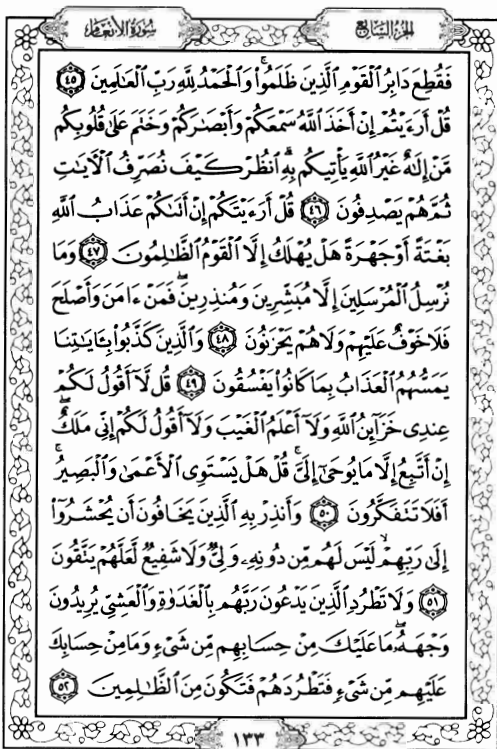 سُورَةُ الأَنْعَام
الجُزْءُ السَّابِعُ
فَقُطِعَ دَابِرُ ٱلْقَوْمِ ٱلَّذِينَ ظَلَمُوا۟ ۚ وَٱلْحَمْدُ لِلَّهِ رَبِّ ٱلْعَٰلَمِينَ ٤٥
قُلْ أَرَءَيْتُمْ إِنْ أَخَذَ ٱللَّهُ سَمْعَكُمْ وَأَبْصَٰرَكُمْ وَخَتَمَ عَلَىٰ قُلُوبِكُم
مَّنْ إِلَٰهٌ غَيْرُ ٱللَّهِ يَأْتِيكُم بِهِ ۗ ٱنظُرْ كَيْفَ نُصَرِّفُ ٱلْءَايَٰتِ
ثُمَّ هُمْ يَصْدِفُونَ ٤٦ قُلْ أَرَءَيْتَكُمْ إِنْ أَتَىٰكُمْ عَذَابُ ٱللَّهِ
بَغْتَةً أَوْ جَهْرَةً هَلْ يُهْلَكُ إِلَّا ٱلْقَوْمُ ٱلظَّٰلِمُونَ ٤٧ وَمَا
نُرْسِلُ ٱلْمُرْسَلِينَ إِلَّا مُبَشِّرِينَ وَمُنذِرِينَ ۖ فَمَنْ ءَامَنَ وَأَصْلَحَ
فَلَا خَوْفٌ عَلَيْهِمْ وَلَا هُمْ يَحْزَنُونَ ٤٨ وَٱلَّذِينَ كَذَّبُوا۟ بِـَٔايَٰتِنَا
يَمَسُّهُمُ ٱلْعَذَابُ بِمَا كَانُوا۟ يَفْسُقُونَ ٤٩ قُل لَّآ أَقُولُ لَكُمْ
عِندِى خَزَآئِنُ ٱللَّهِ وَلَآ أَعْلَمُ ٱلْغَيْبَ وَلَآ أَقُولُ لَكُمْ إِنِّى مَلَكٌ ۖ
إِنْ أَتَّبِعُ إِلَّا مَا يُوحَىٰٓ إِلَىَّ ۚ قُلْ هَلْ يَسْتَوِى ٱلْأَعْمَىٰ وَٱلْبَصِيرُ ۚ
أَفَلَا تَتَفَكَّرُونَ ٥٠ وَأَنذِرْ بِهِ ٱلَّذِينَ يَخَافُونَ أَن يُحْشَرُوٓا۟
إِلَىٰ رَبِّهِمْ ۙ لَيْسَ لَهُم مِّن دُونِهِۦ وَلِىٌّ وَلَا شَفِيعٌ لَّعَلَّهُمْ يَتَّقُونَ
٥١ وَلَا تَطْرُدِ ٱلَّذِينَ يَدْعُونَ رَبَّهُم بِٱلْغَدَوٰةِ وَٱلْعَشِىِّ يُرِيدُونَ
وَجْهَهُۥ ۖ مَا عَلَيْكَ مِنْ حِسَابِهِم مِّن شَىْءٍ وَمَا مِنْ حِسَابِكَ
عَلَيْهِم مِّن شَىْءٍ فَتَطْرُدَهُمْ فَتَكُونَ مِنَ ٱلظَّٰلِمِينَ ٥٢
١٣٣